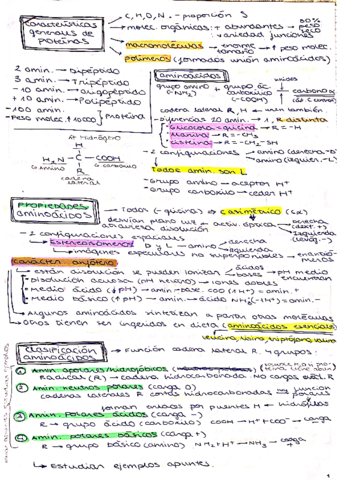 características generales de proteínas
C, H, O, N. - proporción S
molec. orgánicas: + abundantes → 50% peso seco
variedad funciones
macromoléculas → enorme tamaño → ↑ peso molec.
polímeros (formados unión aminoácidos)
2 amin. → Dipéptido
3 amin. → Tripéptido
-10 amin. → oligopéptido
+10 amin. → Polipéptido
-100 amin.
-Peso molec. ↑ 10000 } proteína
aminoácidos
grupo amino (-NH₂) + grupo ác. carboxílico (-COOH)
unidos
carbono α
cadena lateral R, H → unen también
diferencias 20 amin. → R distinta
Glicocola = glicina → R = -H
Alanina → R = -CH₃
cisteína → R = -CH₂-SH
2 configuraciones
Todos amin. son L
Grupo amino → aceptor H⁺
Grupo carboxilo → ceder H⁺
H₂N - C - COOH
G. Amino
G. carboxilo
cadena lateral
Propiedades aminoácidos
Todos (-glicina) → C asimétrico (C*)
desvían plano luz → activ. óptica
atraviesa disolución
derecha (dext. +)
izquierda (levóg. -)
2 configuraciones espaciales
Estereoisómeros
D y L - amino
derecha
izquierda
imágenes especulares no superponibles → enantiómeros
carácter anfótero
están disolución se pueden ionizar
ácidos
bases
pH medio encontradas
Disolución acuosa (pH neutro) → iones dobles
Medio ácido (↓ pH) → amin - base - COO⁻ (+H⁺) = amin. +
Medio básico (↑ pH) → amin. - ácido NH₃⁺ (-H⁺) = amin. -
Algunos aminoácidos sintetizan a partir otras moléculas
Otros tienen ser ingeridos en dieta (aminoácidos esenciales)
leucina, valina, triptófano, valina
Clasificación aminoácidos
Función cadena lateral R. 4 grupos:
① Amin. apolares/hidrofóbicos
Radical (R) → cadena hidrocarbonada. No cargas eléct. R
② Amin. neutros polares (carga 0)
cadenas laterales R cortas hidrocarbonadas → función polares
forman enlaces por puentes H → hidrófilos
③ Amin. Polares ácidos (carga -)
R → grupo ácido (carboxilo) COOH → H⁺ + COO⁻ → carga -
④ Amin. polares básicos (carga +)
R → grupo básico (amino) NH₂ + H⁺ → NH₃ → carga +
↳ Estudiar ejemplos apuntes.